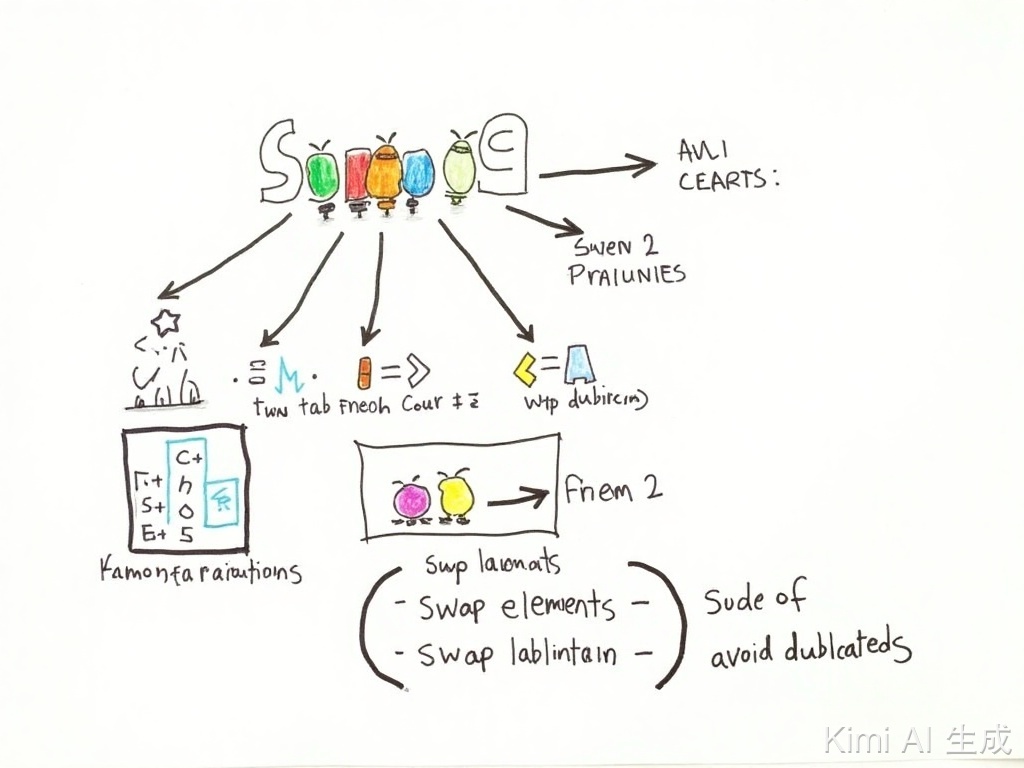 AVLI
CEARTS:
SWEN 2
PRAIUNIES
tww tab Fneoh Cour
wtp dubircin)
C+
S+
E+ 5
Fnem 2
Kamonfaraiautions
Swp laomats
- Swap elements -
- Swap lablintain -
Sude of
avoid dublcateds
Kimi AI 生成